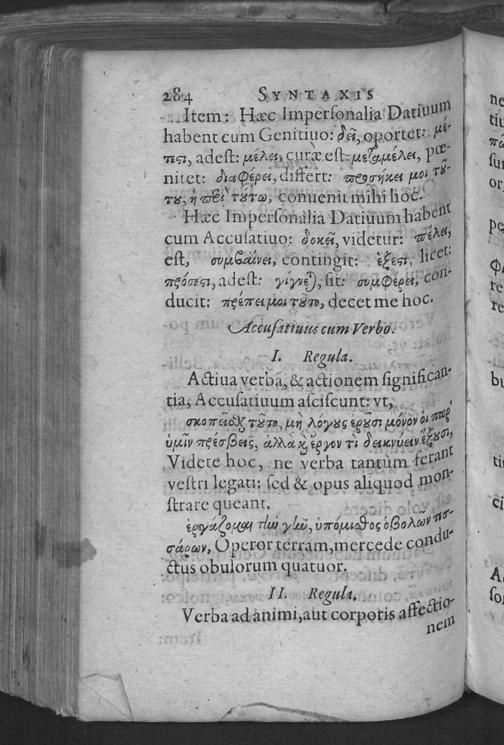 284 SYNTAXIS
Item: Hæc Impersonalia Datiuum
habent cum Genitiuo: δεῖ, oportet: μέ-
τεστι, adest: μέλει, curæ est: μεταμέλει, pœ-
nitet: διαφέρει, differt: προσήκει μοι τού-
του, ἢ περὶ τούτου, conuenit mihi hoc.
Hæc Impersonalia Datiuum habent
cum Accusatiuo: δοκεῖ, videtur: πέλει,
est, συμβαίνει, contingit: ἔξεστι, licet:
πρόσεστι, adest: γίγνεται, fit: συμφέρει, con-
ducit: πρέπει μοι τοῦτο, decet me hoc.
Accusatiuus cum Verbo.
I. Regula.
Actiua verba, & actionem significan-
tia, Accusatiuum asciscunt: vt,
σκοπεῖσθε τοῦτο, μὴ λόγους ἐροῦσι μόνον οἱ παρ'
ὑμῖν πρέσβεις, ἀλλὰ καὶ ἔργον τὶ δεικνύειν ἕξουσι,
Videte hoc, ne verba tantum ferant
vestri legati: sed & opus aliquod mon-
strare queant.
ἐργάζομαι τὴν γῆν, ὑπόμισθος ὀβολῶν τεσ-
σάρων, Operor terram, mercede condu-
ctus obulorum quatuor.
II. Regula.
Verba ad animi, aut corporis affectio-
nem